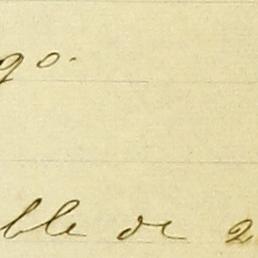 go.
ble de 2